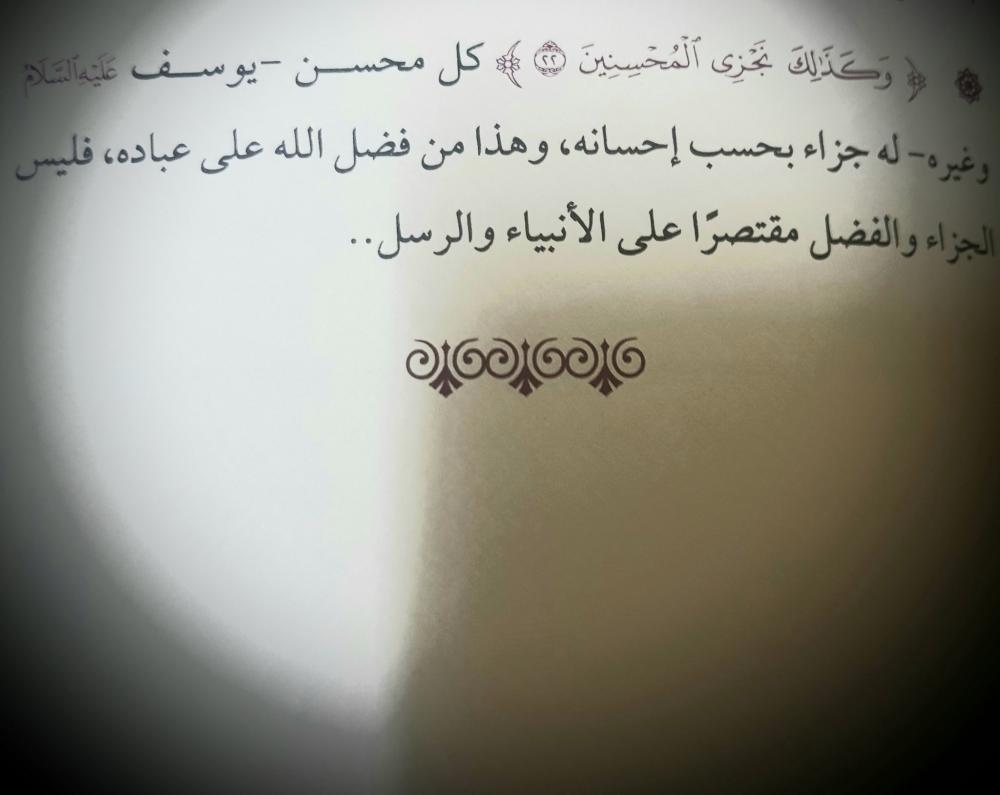 ﴿ وَكَذَٰلِكَ نَجْزِى ٱلْمُحْسِنِينَ ٢٢ ﴾ كل محســـن -يوســـف عَلَيْهِ ٱلسَّلَامُ
وغيره- له جزاء بحسب إحسانه، وهذا من فضل الله على عباده، فليس
الجزاء والفضل مقتصرًا على الأنبياء والرسل..